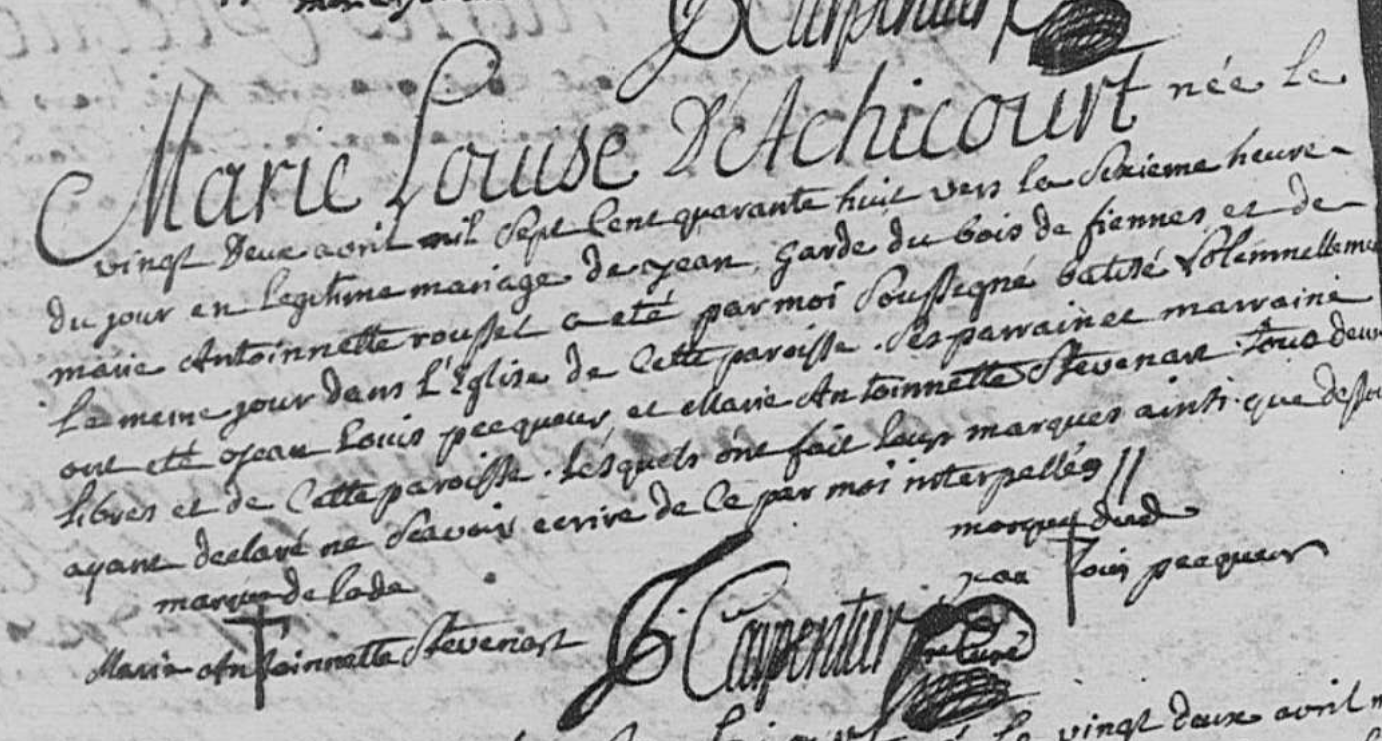 Carpentier
Marie Louise D'Achicourt née le
vingt Deux avril mil Sept Cent quarante huit vers la Sixieme heure
du jour en legitime mariage de jean, garde du bois de fiennes et de
marie Antoinnette roussel a eté par moi Soussigné batisé Solemnellement
le meme jour dans l'Eglise de Cette paroisse. Ses parrain et marraine
ont eté jean Louis pecqueur, et Marie Antoinnette Stevenart. tous deux
libres et de Cette paroisse. lesquels ont fait leurs marques ainsi que dessous
ayant declaré ne Scavoir ecrire de Ce par moi interpellés //
marque dud
jean Louis pecqueur
marque de lade
Marie Antoinnette Stevenart
Carpentier
Curé
le vingt deux avril